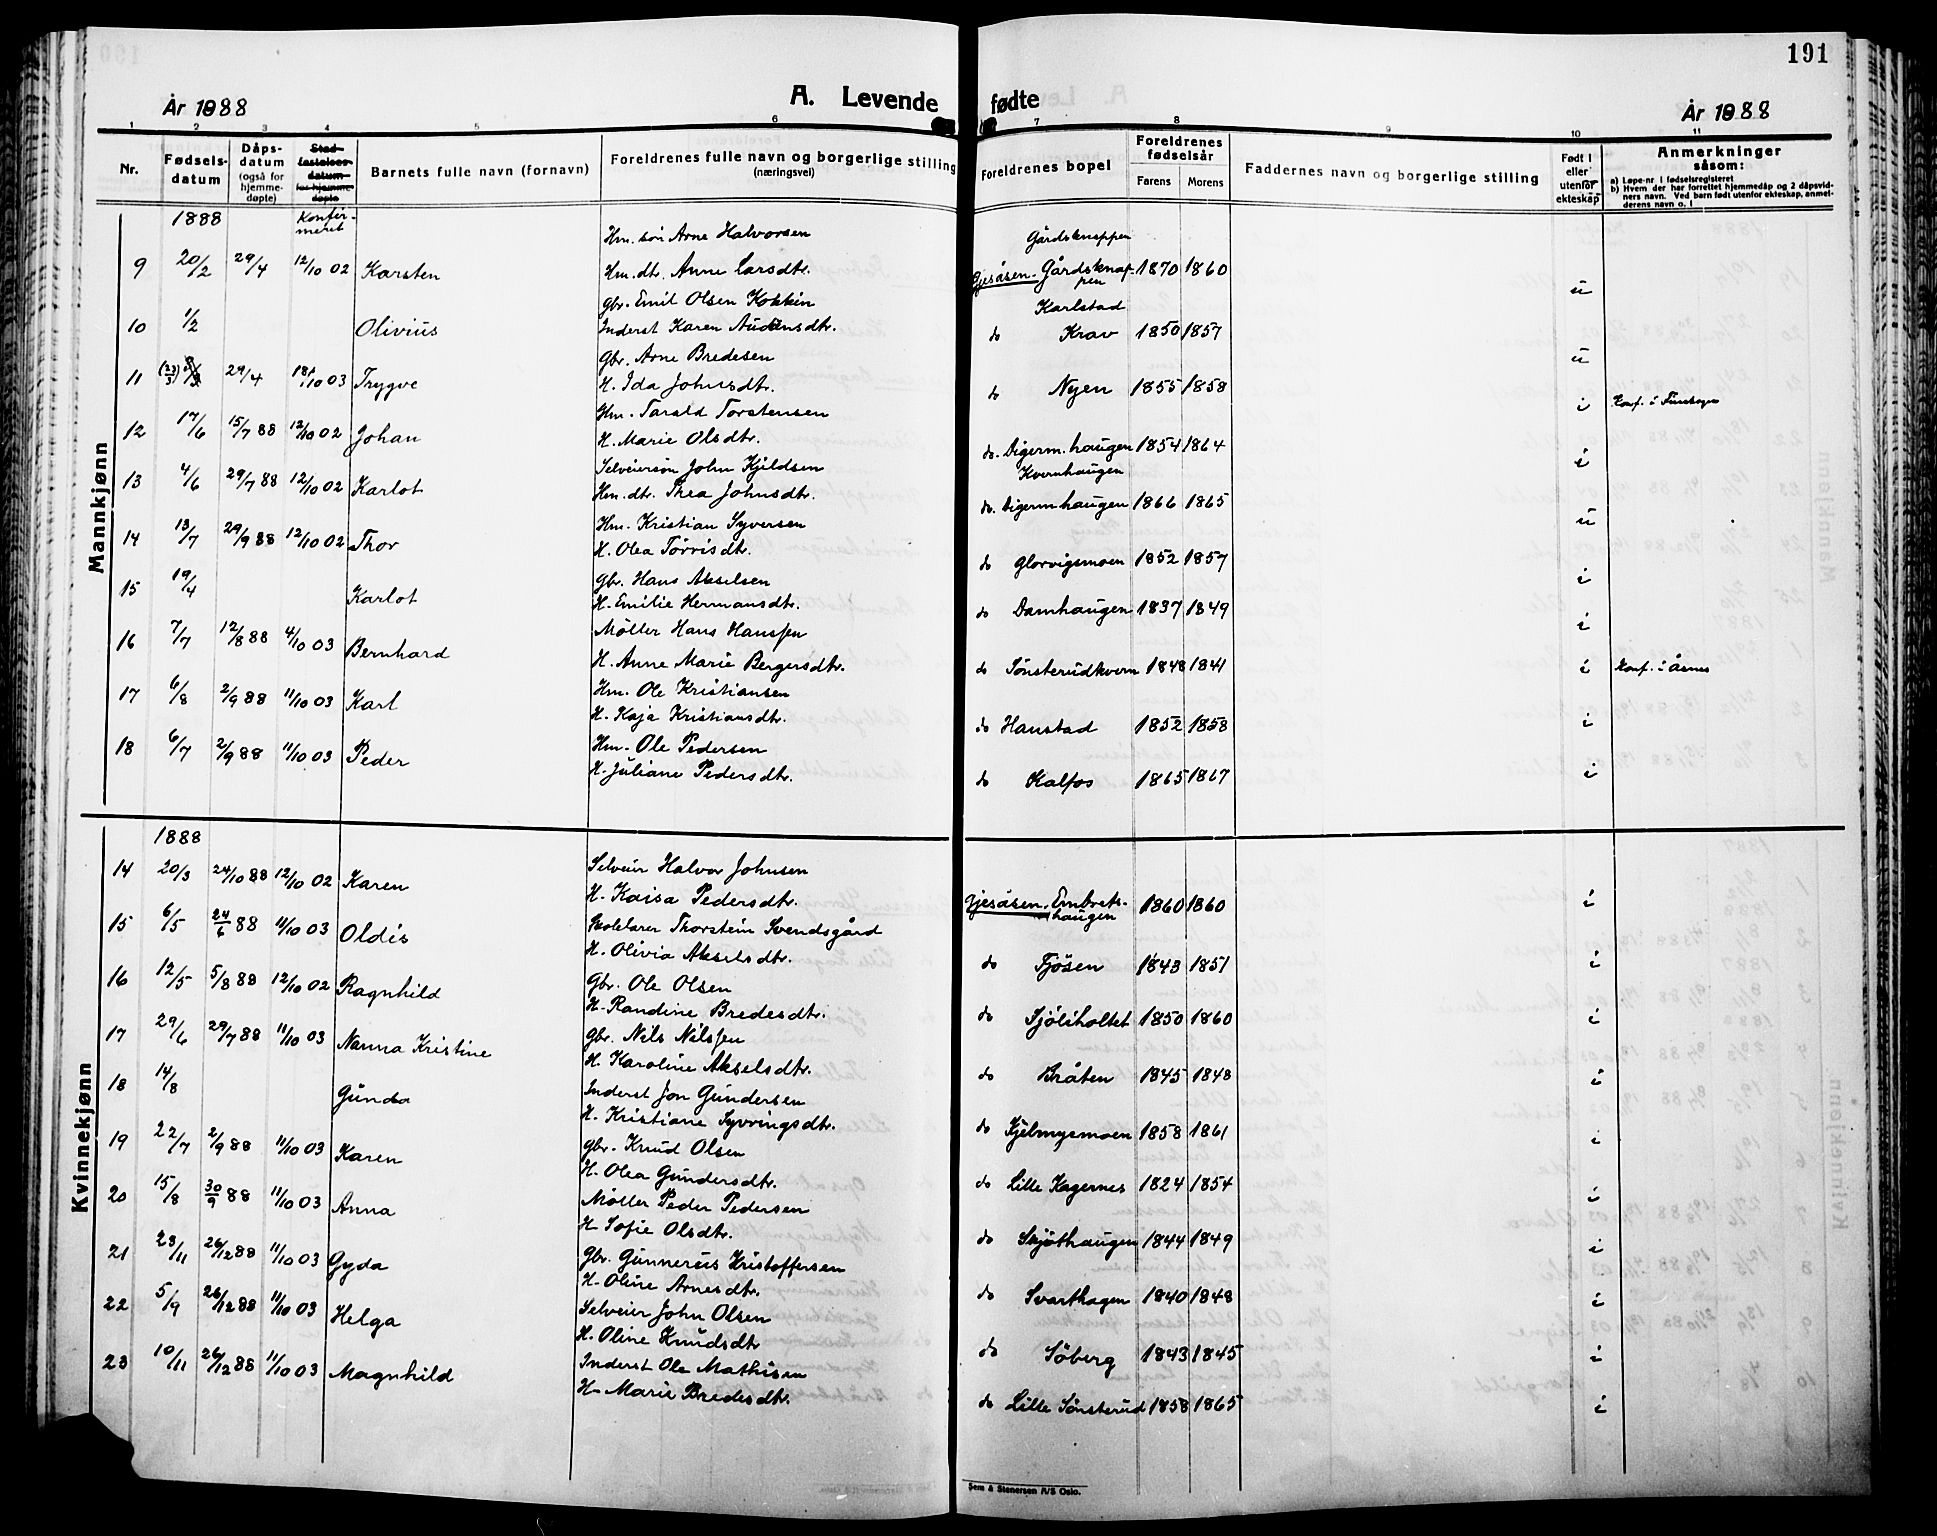 191
År 1888 A. Levende fødte År 1888
1 2 3 4 5 6 7 8 9 10 11
Nr. Fødselsdatum Dåpsdatum (også for hjemmedøpte) Stadfestelsesdatum for hjemmedøpte Barnets fulle navn (fornavn) Foreldrenes fulle navn og borgerlige stilling (næringsvei) Foreldrenes bopel Foreldrenes fødselsår Farens Morens Faddernes navn og borgerlige stilling Født i eller utenfor ekteskap Anmerkninger såsom:
a) Løpe-nr i fødselsregisteret
b) Hvem der har forrettet hjemmedåp og 2 dåpsvidners navn. Ved barn født utenfor ekteskap, anmelderens navn o. l
Mannkjønn
1888 Konfirmeret
Hm. søn Arne Halvorsen Gårdsknappen
9 20/2 29/4 12/10 02 Karsten Hm. dtr. Anne Larsdtr. Gjesåsen. Gårdsknappen 1870 1860 u
Gbr. Emil Olsen Kokkin Karlstad
10 1/2 Olivius Inderst Karen Audensdtr. do Krav 1850 1857 u
Gbr. Arne Bredesen
11 (23/3) 29/4 18/10 03 Trygve H. Ida Johnsdtr. do Nyen 1855 1858 i Konf. i
Hm. Tarald Torstensen
12 17/6 15/7 88 12/10 02 Johan H. Marie Olsdtr. do. Digerm.haugen 1854 1864 i
Selveiersøn John Kjildsen Kvernhaugen
13 4/6 29/7 88 12/10 02 Karlot Hm. dtr. Thea Johnsdtr. do. Digermhaugen 1866 1865 u
Hm. Kristian Syversen
14 13/7 29/9 88 12/10 02 Thor H. Olea Torrisdtr. do Glorvigsmoen 1852 1857 i
Gbr. Hans Akselsen
15 19/4 Karlot H. Emilie Hermansdtr. do Damhaugen 1837 1849 i
Møller Hans Hanssen
16 7/7 12/8 88 4/10 03 Bernhard H. Anne Marie Bergersdtr. do Sønsterudkvern 1848 1841 i Konf. i Åsnes
Hm. Ole Kristiansen
17 6/8 2/9 88 11/10 03 Karl H. Kaja Kristiansdtr. do Haustad 1852 1858 i
Hm. Ole Pedersen
18 6/7 2/9 88 11/10 03 Peder H. Juliane Pedersdtr. do Kalfos 1865 1867 i
Kvinnekjønn
1888
Selveier Halvor Johnsen
14 20/3 24/10 88 12/10 02 Karen H. Kaisa Pedersdtr. Gjesåsen. Embretshaugen 1860 1860 i
15 6/5 24/6 88 11/10 03 Oldis Skolelærer Thorstein Svendsgård
H. Olivia Akselsdtr. do Tjösen 1843 1851 i
16 12/5 5/8 88 12/10 02 Ragnhild Gbr. Ole Olsen
H. Randine Bredesdtr. do Sjöliholtet 1850 1860 i
17 29/6 29/7 88 11/10 03 Nanna Kristine Gbr. Nils Nilssen
H. Karoline Akselsdtr. do Bråten 1845 1848 i
18 14/8 Gunda Inderst Jon Gundersen
H. Kristiane Syvringsdtr. do Kjelmysmoen 1858 1861 i
19 22/7 2/9 88 11/10 03 Karen Gbr. Knud Olsen
H. Olea Gundersdtr. do Lille Hagernes 1824 1854 i
20 15/8 30/9 88 11/10 03 Anna Møller Peder Pedersen
H. Sofie Olsdtr. do Skjøthaugen 1844 1849 i
21 23/11 26/12 88 11/10 03 Gyda Gbr. Gunnerius Kristoffersen
H. Oline Arnesdtr. do Svarthagen 1840 1848 i
22 5/9 26/12 88 11/10 03 Helga Selveier John Olsen
H. Oline Knudsdtr. do Söberg 1843 1845 i
23 10/11 26/12 88 11/10 03 Magnhild Inderst Ole Mathisen
H. Marie Bredesdtr. do Lille Sønsterud 1858 1865 i
Sem & Stenersen A/S Oslo.